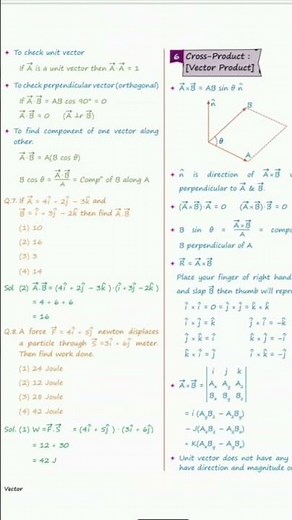 ✦ To check unit vector
If A⃗ is a unit vector then A⃗·A⃗ = 1
✦ To check perpendicular vector (orthogonal)
A⃗·B⃗ = AB cos 90° = 0
A⃗·B⃗ = 0 (A⃗ ⊥r B⃗)
✦ To find component of one vector along
other.
A⃗·B⃗ = A(B cos θ)
B cos θ = A⃗·B⃗/A = Compⁿ of B along A
Q.7. If A⃗ = 4î + 2ĵ - 3k̂ and
B⃗ = î + 3ĵ - 2k̂ then find A⃗.B⃗
(1) 10
(2) 16
(3) 3
(4) 14
Sol. (2) A⃗.B⃗ = (4î + 2ĵ - 3k̂).(î+3ĵ-2k̂)
= 4 + 6 + 6
= 16
Q.8. A force F⃗ = 4î + 5ĵ newton displaces
a particle through S⃗ = 3î + 6ĵ meter.
Then find work done.
(1) 24 Joule
(2) 12 Joule
(3) 28 Joule
(4) 42 Joule
Sol. (1) W = F⃗.S⃗ = (4î + 5ĵ).(3î + 6ĵ)
= 12 + 30
= 42 J
Vector
6 Cross-Product :
[Vector Product]
✦ A⃗×B⃗ = AB sin θ n̂
n̂
B
θ
A
✦ n̂ is direction of A⃗×B⃗
perpendicular to A⃗ & B⃗.
✦ (A⃗×B⃗)·A⃗ = 0 (A⃗×B⃗)·B⃗ = 0
✦ B sin θ = A⃗×B⃗/A =
B perpendicular of A
✦ R⃗ = A⃗×B⃗
Place your finger of right hand
and slap B⃗ then thumb will
î × î = 0 = ĵ × ĵ = k̂ × k̂
î × ĵ = k̂ ĵ × î = -k̂
ĵ × k̂ = î k̂ × ĵ = -î
k̂ × î = ĵ î × k̂ = -ĵ
✦ A⃗×B⃗ = | i j k |
| Aₓ Aᵧ A_z |
| Bₓ Bᵧ B_z |
= i (AᵧB_z - A_zBᵧ)
- J(AₓB_z - A_zBₓ)
+ K(AₓBᵧ - AᵧBₓ)
✦ Unit vector does not have any
have direction and magnitude